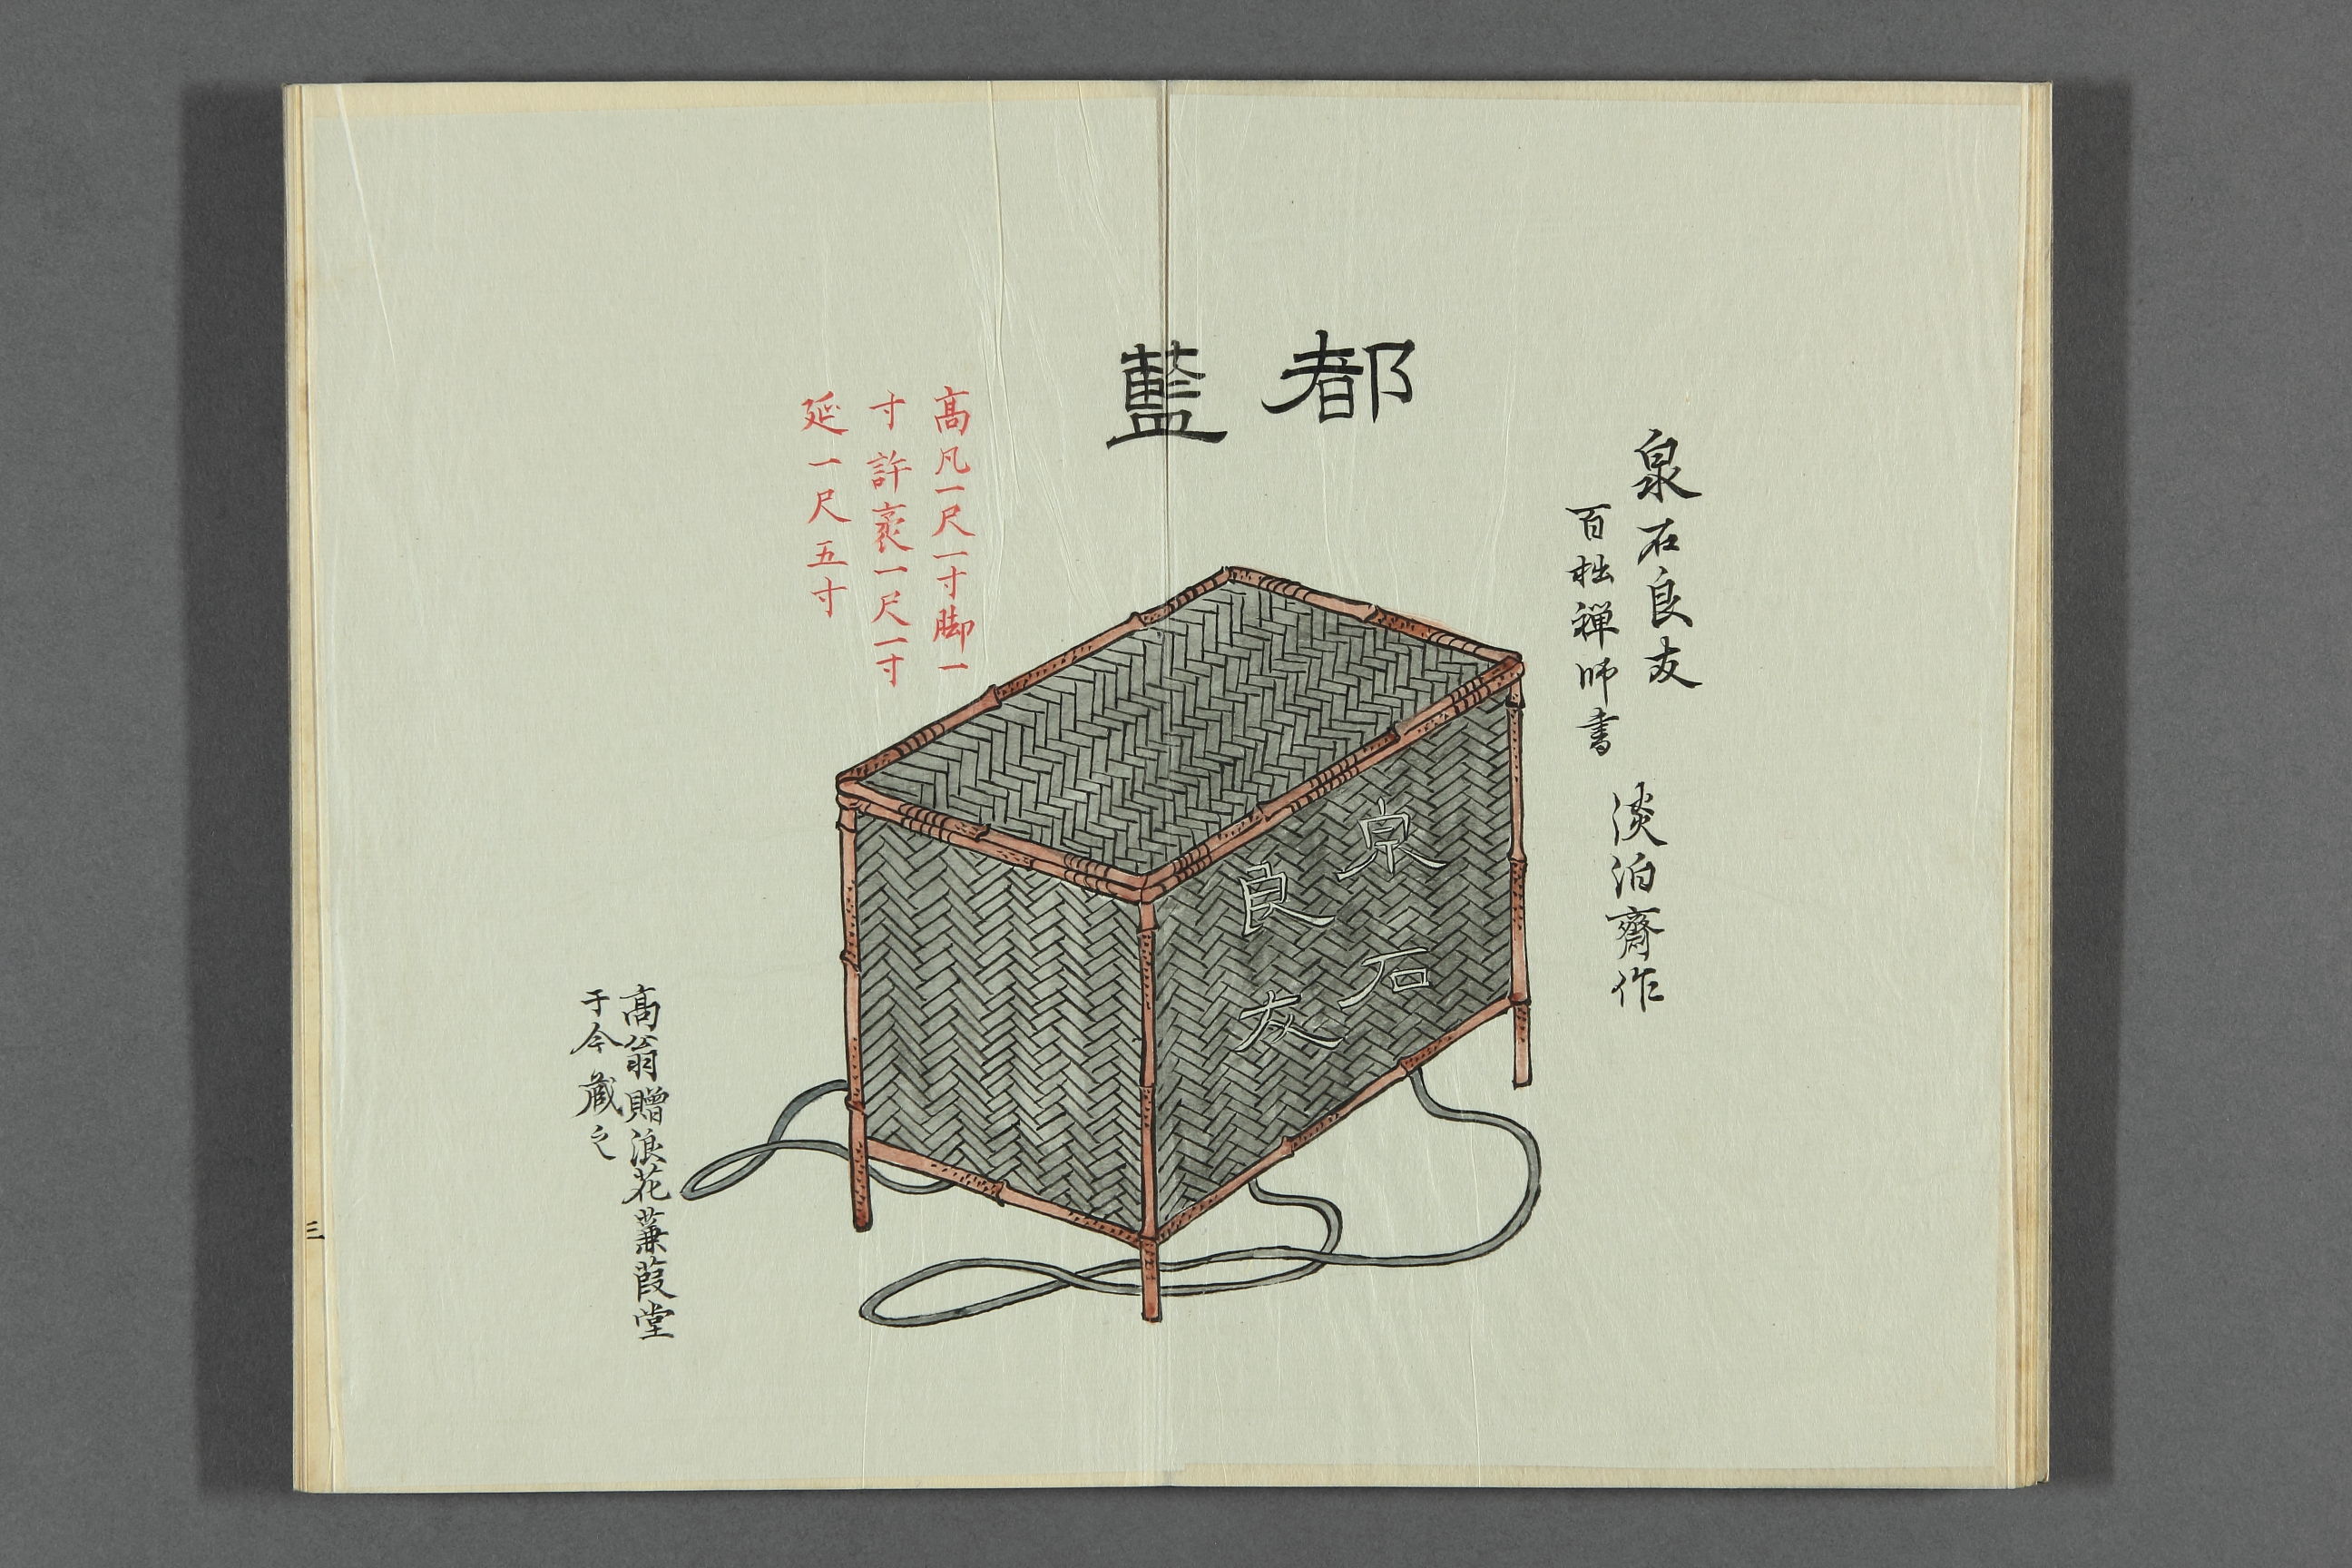 都藍
泉石良友
百拙禅師書
淡泊齋作
高凡一尺一寸脚一
寸許袤一尺一寸
延一尺五寸
泉石
良友
高翁贈浪花蒹葭堂
于今蔵之
三